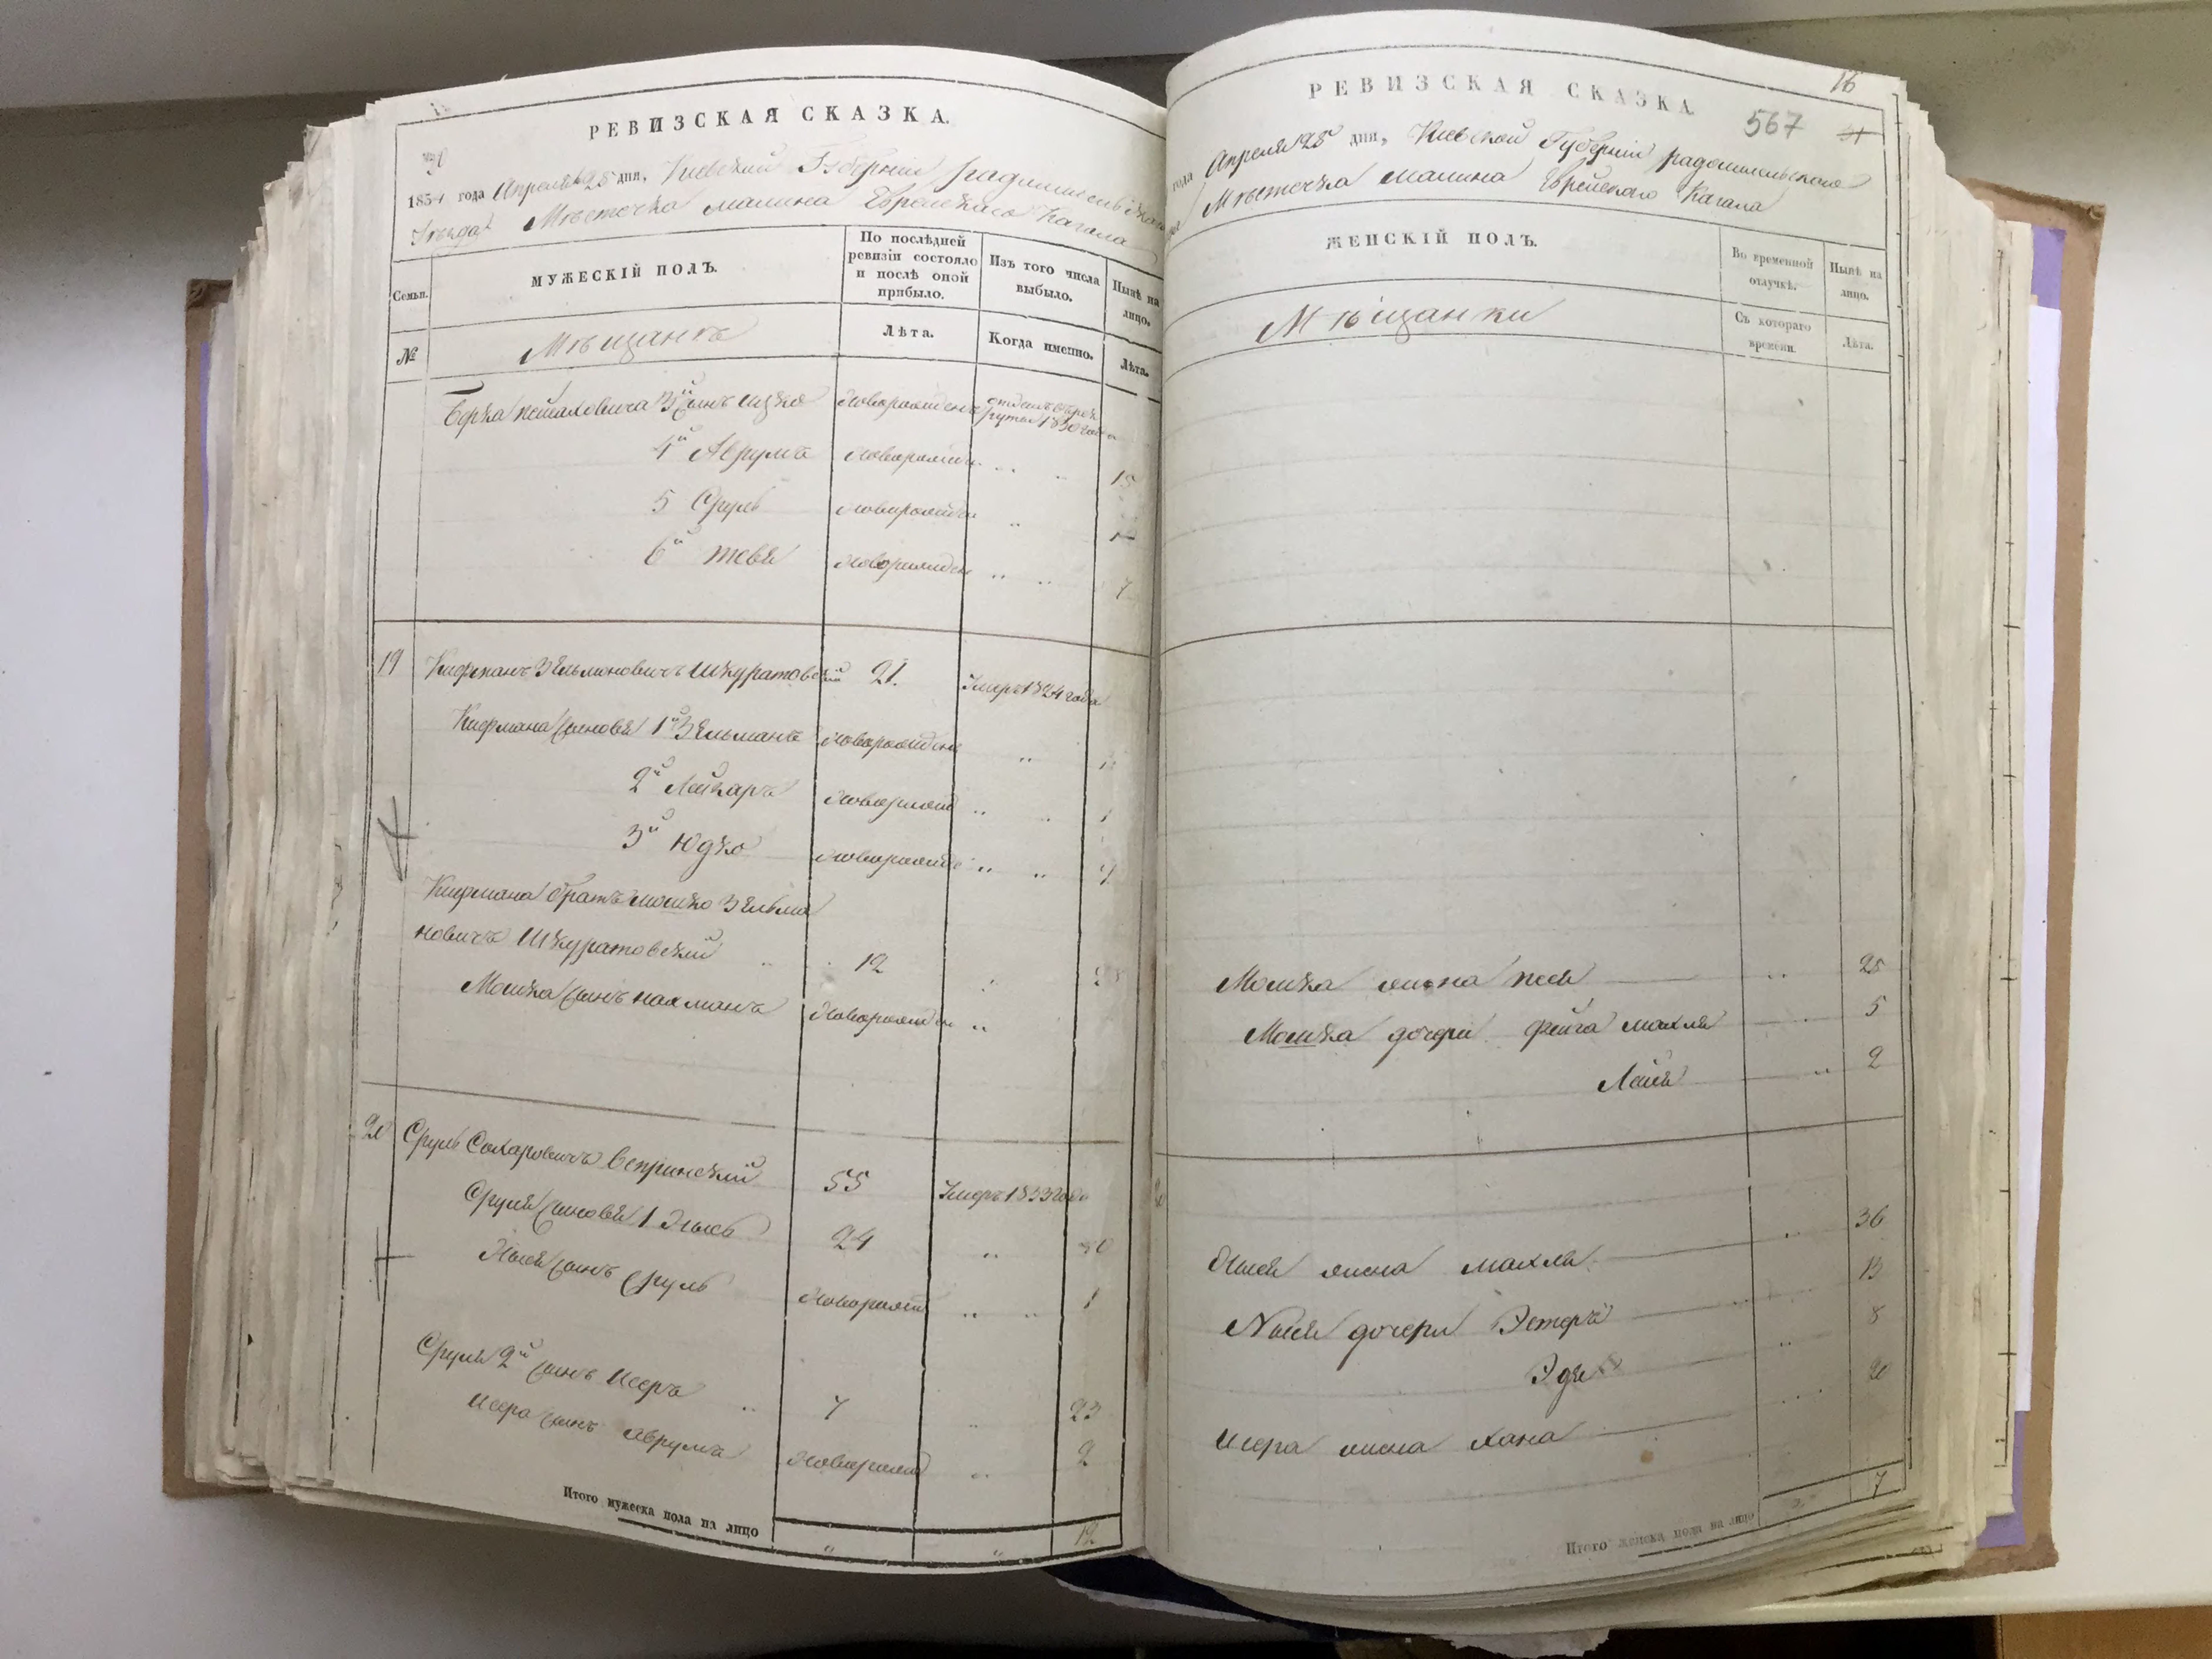 РЕВИЗСКАЯ СКАЗКА.
1834 года Апреля 25 дня, Киевской Губернии
Мѣстечка Малина Еврейскаго Кагала
Семьи.
МУЖЕСКІЙ ПОЛЪ.
По послѣдней ревизіи состояло и послѣ оной прибыло.
Изъ того числа выбыло.
Нынѣ на лицо.
№
Мѣщанъ
Лѣта.
Когда именно.
Лѣта.
Берка 3й сынъ Ицко новорожденъ 1830 года
4й Аврумъ новорожден 15
5 Сруль новорожден
6й Тевя новорожден 7
19 Кифманъ Зельмоновичъ Шкуратовскій 21. Умеръ 1824 года
Кифмана сыновья 1й Зельманъ новорожден
2й Лейзаръ новорожд
3й Юдко новорожде
Кифмана братъ Мошко Зельма
новичъ Шкуратовскій 12
Мошка сынъ Нахманъ новорожден
20 Сруль Сохаровичъ Вепринскій 55 Умеръ 1833 года
Сруля сыновья 1 24
сынъ Сруль новорожд 1
Сруля 2й сынъ Исеръ 7 23
Исера сынъ Аврумъ новорожд 2
Итого мужеска пола на лицо 12
16
РЕВИЗСКАЯ СКАЗКА.
567
года Апреля 25 дня, Киевской Губерніи Радомысльскаго
Мѣстечка Малина Еврейскаго Кагала
ЖЕНСКІЙ ПОЛЪ.
Во временной отлучкѣ.
Нынѣ на лицо.
Мѣщанки
Съ котораго времени.
Лѣта.
Мошка жена 25
Мошка дочери Фейга Махля 5
Лея 2
жена Махля 36
дочери Эстеръ 13
Эдя 8
Исера жена Хана 20
Итого женска пола на лицо 7